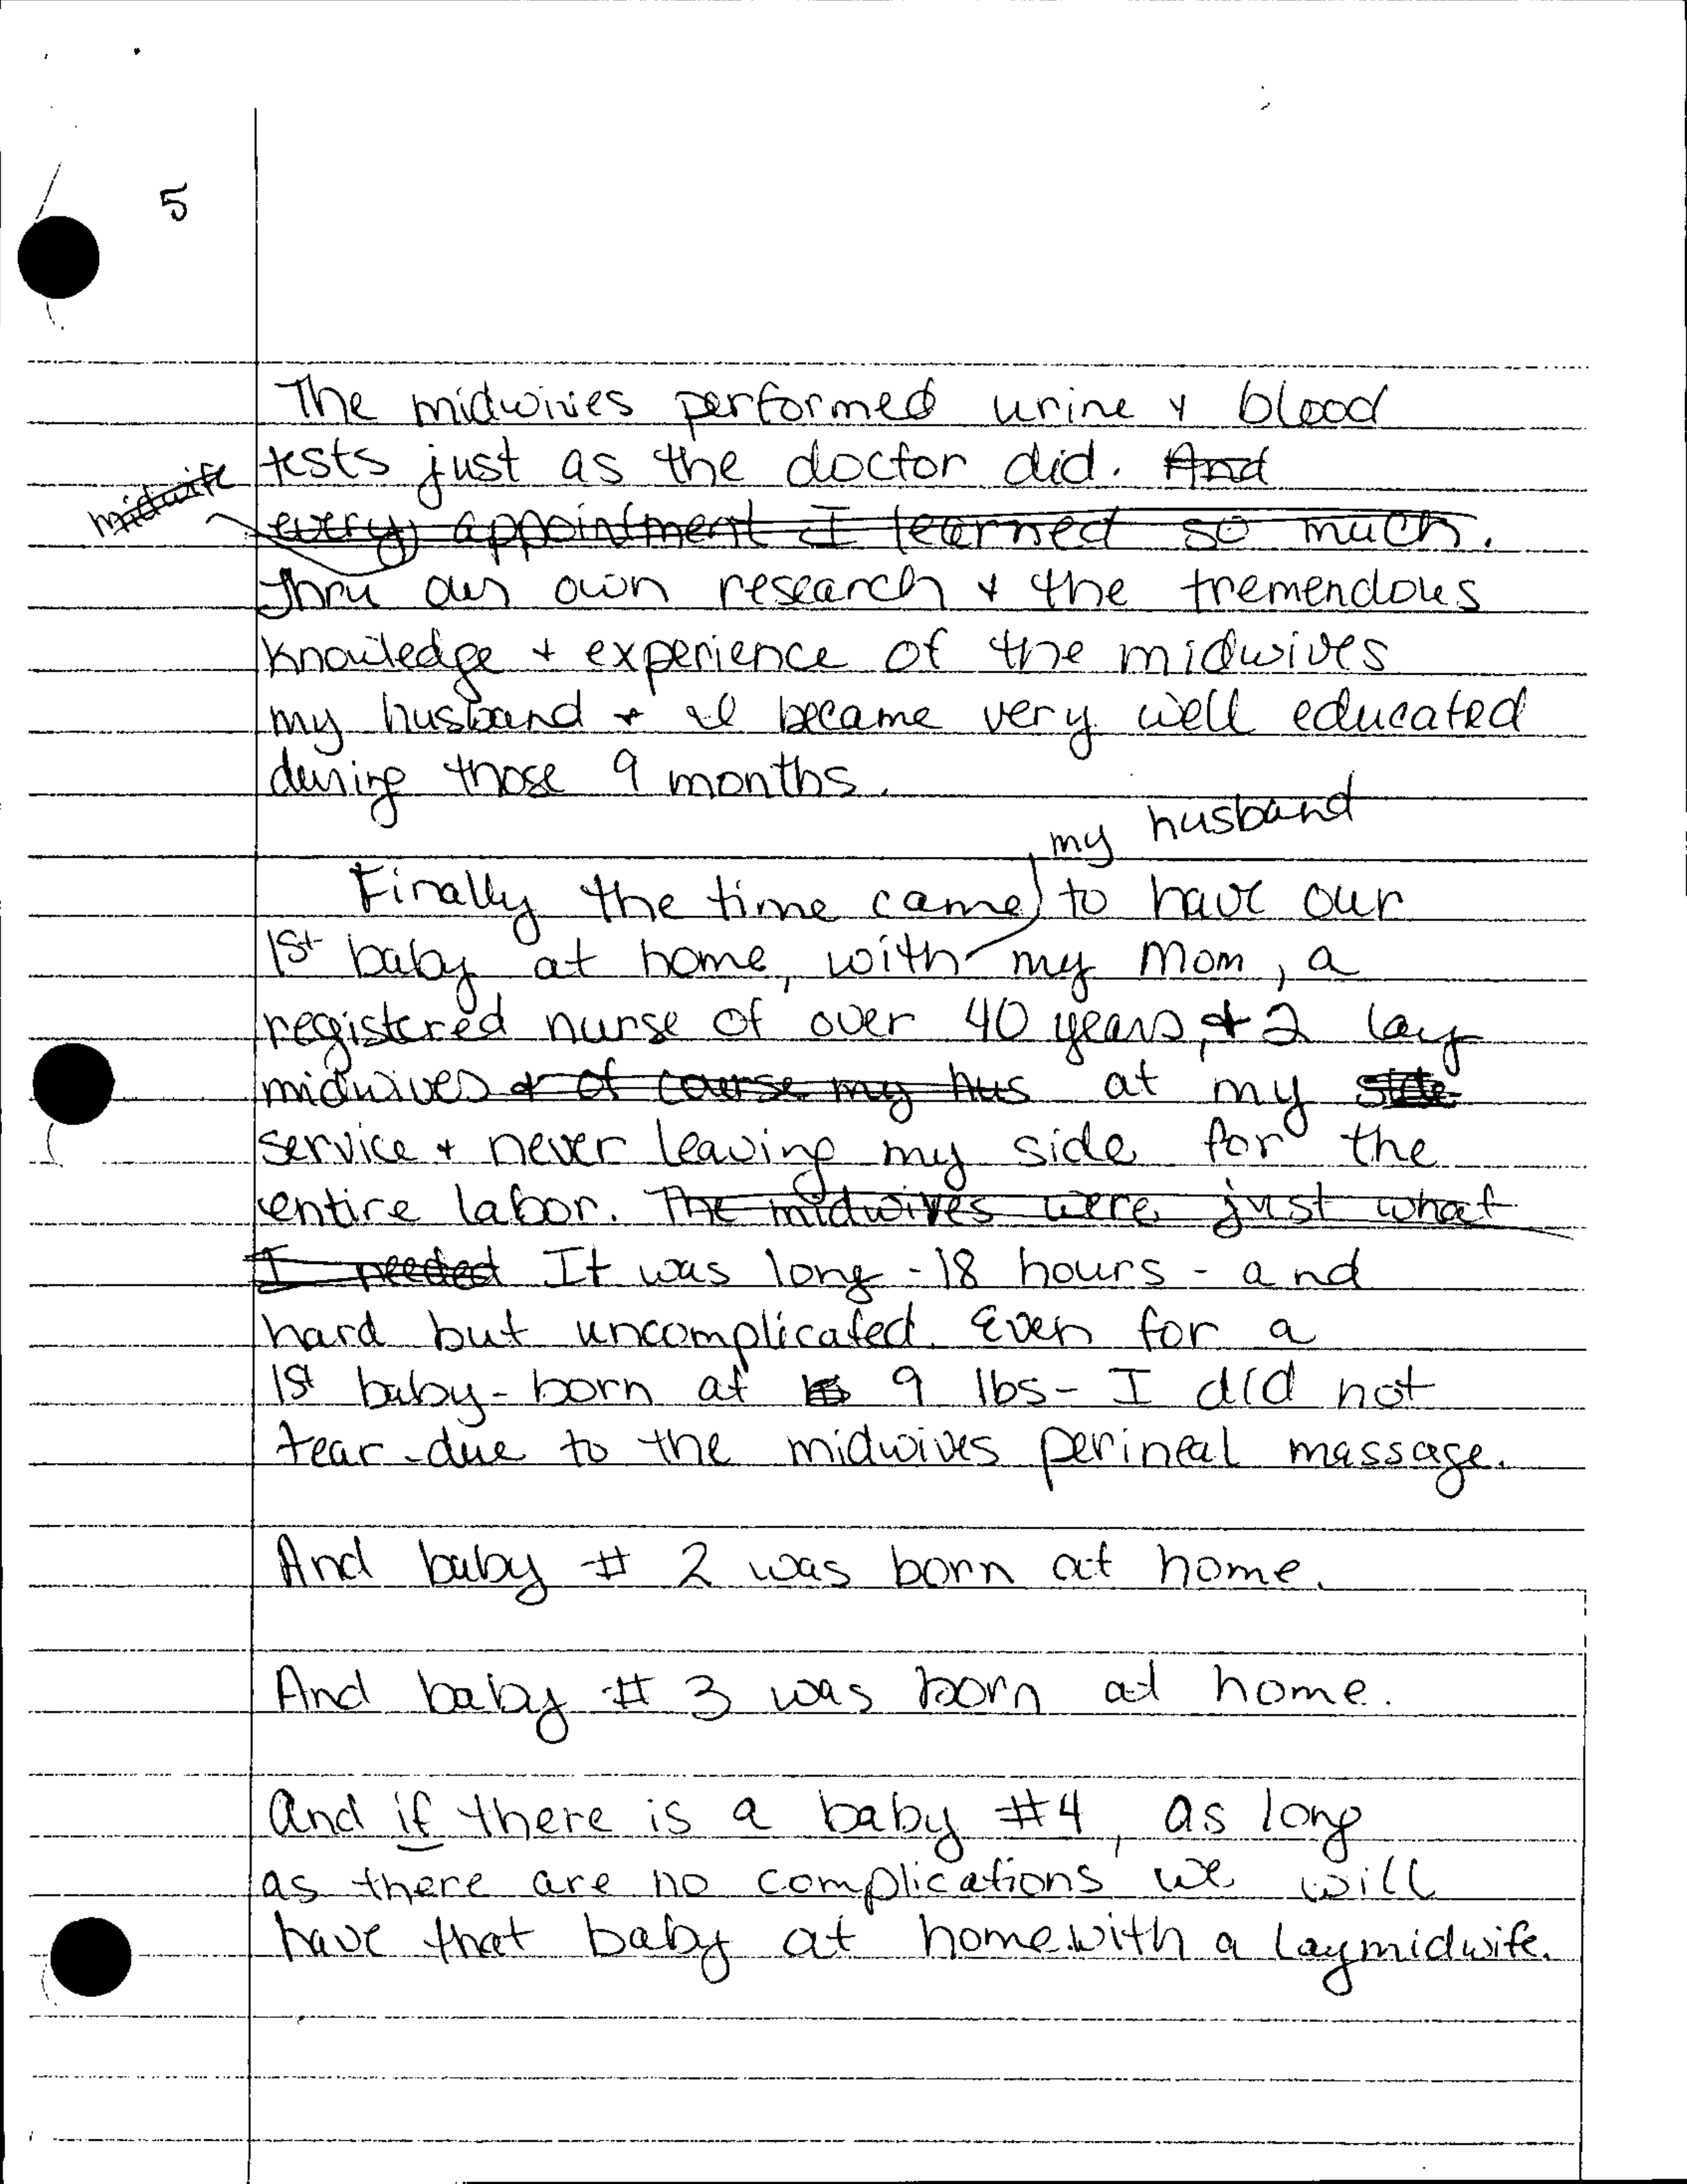 5
The midwives performed urine & blood
tests just as the doctor did. And
midwife
every appointment I learned so much.
Thru our own research & the tremendous
knowledge + experience of the midwives
my husband + I became very well educated
during those 9 months.
my husband
Finally the time came to have our
1st baby at home, with my Mom, a
registered nurse of over 40 years, + 2 lay
midwives & of course my hus at my side
service + never leaving my side for the
entire labor. The midwives were just what
I needed It was long - 18 hours - and
hard but uncomplicated. Even for a
1st baby - born at 9 lbs - I did not
tear - due to the midwives perineal massage.
And baby # 2 was born at home.
And baby # 3 was born at home.
And if there is a baby #4, as long
as there are no complications we will
have that baby at home with a lay midwife.